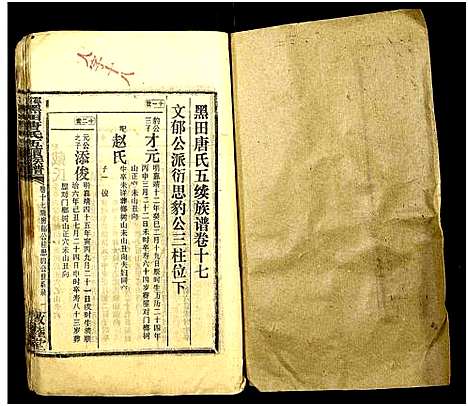 黑田唐氏五续族谱卷十七
文郁公派衍思豹公三柱位下
十一世
豹公三子
才元
明嘉靖十二年癸巳二月十九日辰时生万历二十四年
丙申三月二十二日未时卒寿六十四岁葬屋对门榔树
山正穴未山丑向
配
赵氏
生卒未详葬榔树山未山丑向夫妇同穴
子一 俊
十二世
元公之子
添俊
明嘉靖四十五年丙寅九月二十一日戌时生
治六年己丑七月二十四日申时卒寿八十三岁葬
屋对门榔树山正穴未山丑向